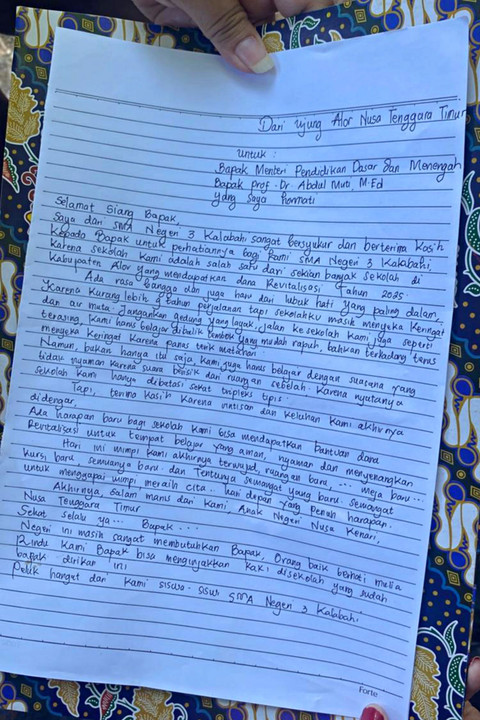 Dari ujung Alor Nusa Tenggara Timur
untuk :
Bapak Menteri Pendidikan Dasar dan Menengah
Bapak prof. Dr. Abdul Muti, M.Ed
yang saya hormati
Selamat siang Bapak,
Saya dari SMA Negeri 3 Kalabahi sangat bersyukur dan berterima kasih
kepada Bapak untuk perhatiannya bagi kami SMA Negeri 3 Kalabahi,
karena sekolah kami adalah salah satu dari sekian banyak sekolah di
kabupaten Alor yang mendapatkan dana Revitalisasi Tahun 2025.
Ada rasa bangga dan juga haru dari lubuk hati yang paling dalam,
Karena kurang lebih 9 tahun perjalanan tapi sekolahku masih menyeka keringat
dan air mata. Jangankan gedung yang layak, jalan ke sekolah kami juga seperti
terasing, kami harus belajar dibalik tembok yang mudah rapuh, bahkan terkadang terus
menyeka keringat karena panas terik matahari
Namun, bukan hanya itu saja kami juga harus belajar dengan suasana yang
tidak nyaman karena suara bisik dari ruangan sebelah. Karena nyatanya
sekolah kami hanya dibatasi sekat tripleks tipis.
Tapi, terima kasih karena rintisan dan keluhan kami akhirnya
didengar,
Ada harapan baru bagi sekolah kami bisa mendapatkan bantuan dana
Revitalisasi untuk tempat belajar yang aman, nyaman dan menyenangkan
Hari ini mimpi kami akhirnya terwujud, ruangan baru, ... meja baru ...
kursi baru semuanya baru dan tentunya semangat yang baru. Semangat
untuk menggapai mimpi meraih cita .. hari depan yang penuh harapan.
Akhirnya, salam manis dari kami, Anak Negeri Nusa Kenari,
Nusa Tenggara Timur
Sehat selalu ya... Bapak ...
Negeri ini masih sangat membutuhkan Bapak, Orang baik berhati mulia
Rindu kami Bapak bisa menginjakkan kaki disekolah yang sudah
bapak dirikan ini
Peluk hangat dari kami siswa-siswi SMA Negeri 3 Kalabahi
Forte